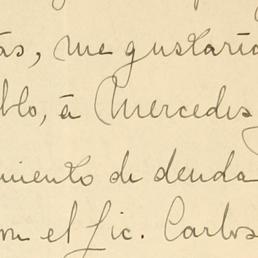 ás, me gustaría
blo, á Mercedes
miento de deuda
on el Lic. Carlos